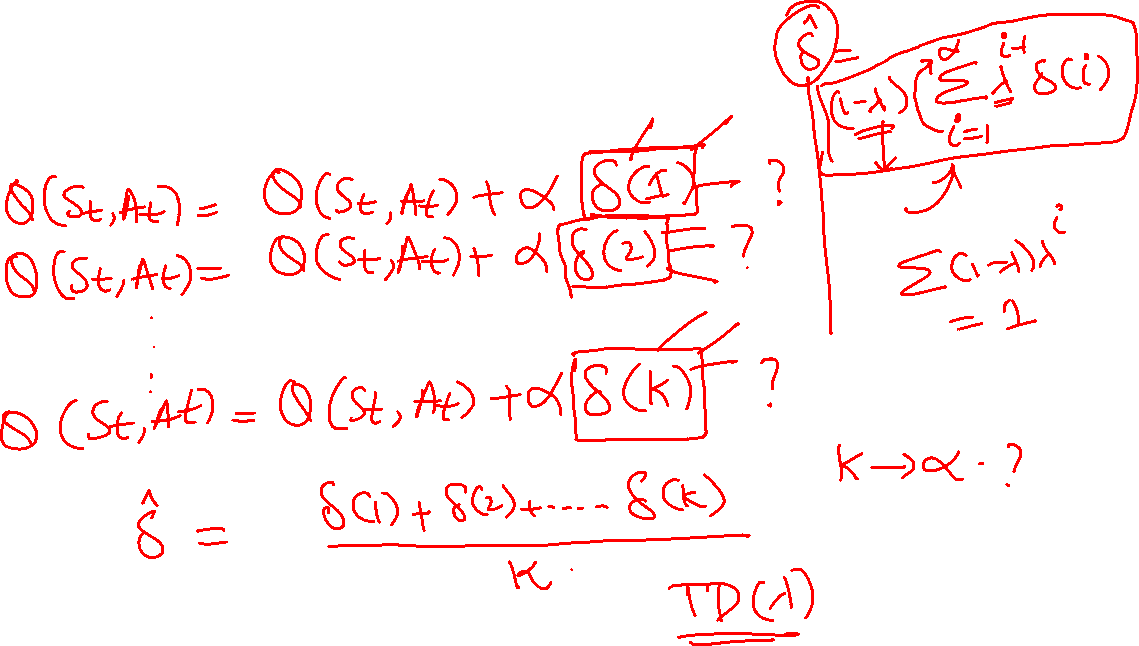 Q(St,At) = Q(St,At) + α δ(1) ?
Q(St,At) = Q(St,At) + α δ(2) ?
⋮
Q(St,At) = Q(St,At) + α δ(K) ?
δ̂ = (δ(1) + δ(2) + ..... δ(K)) / K.
TD(λ)
δ̂ =
(1-λ) ∑_{i=1}^{α} λ^{i-1} δ(i)
∑(1-λ)λ^i
= 1
K → α . ?